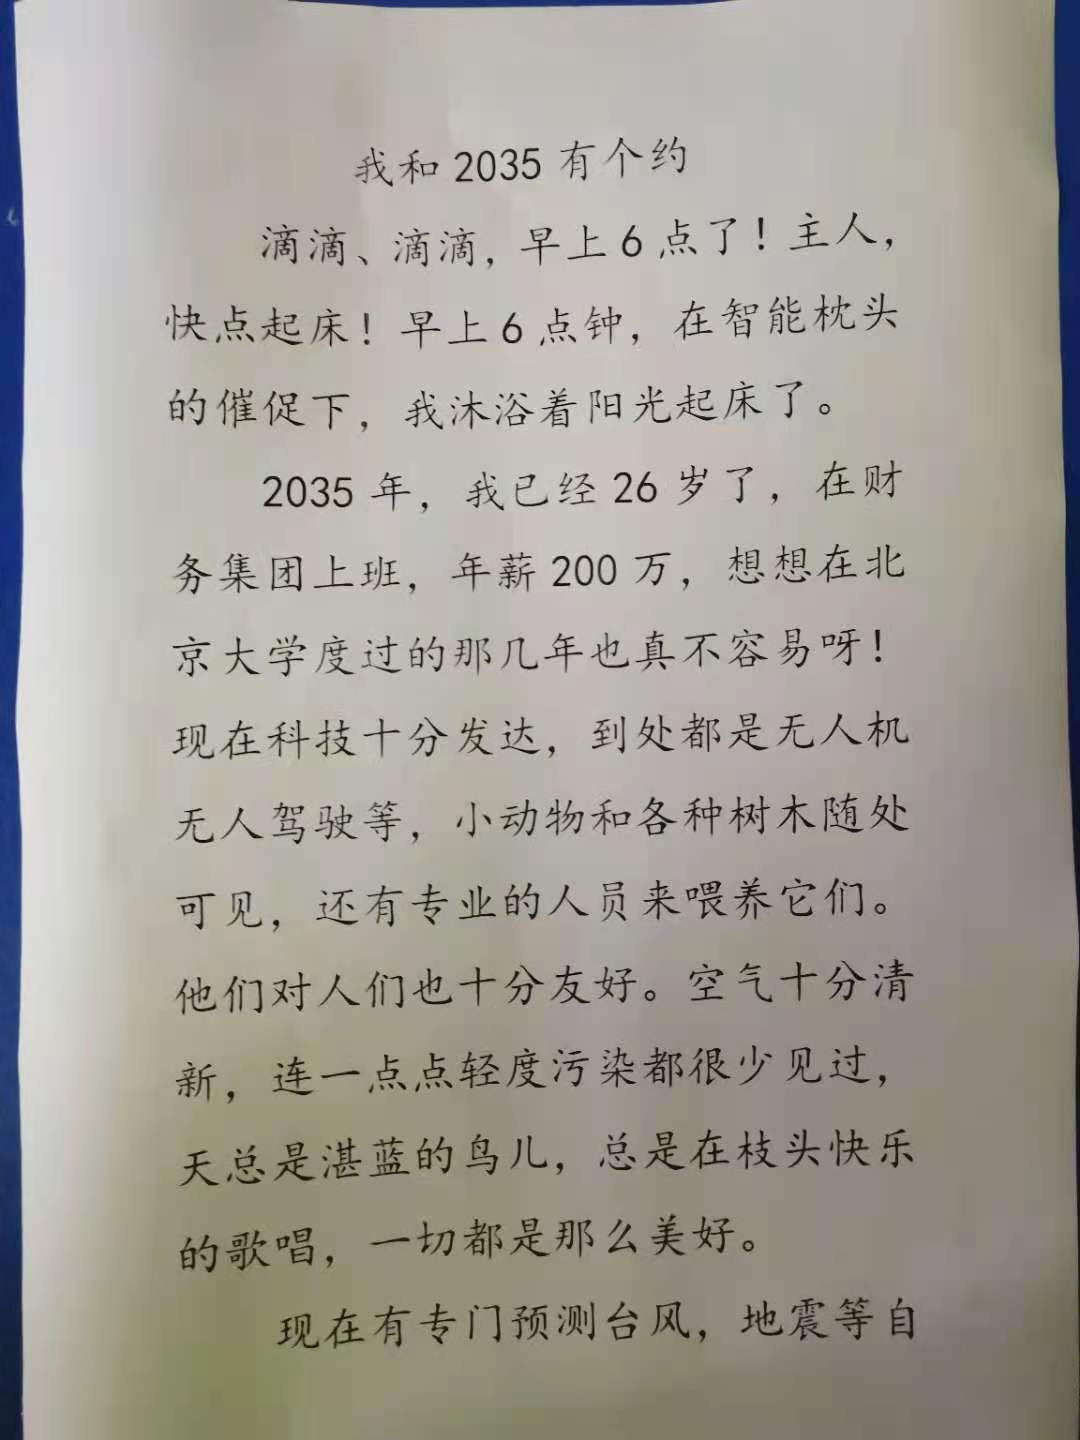 我和2035有个约
滴滴、滴滴，早上6点了！主人，
快点起床！早上6点钟，在智能枕头
的催促下，我沐浴着阳光起床了。
2035年，我已经26岁了，在财
务集团上班，年薪200万，想想在北
京大学度过的那几年也真不容易呀！
现在科技十分发达，到处都是无人机
无人驾驶等，小动物和各种树木随处
可见，还有专业的人员来喂养它们。
他们对人们也十分友好。空气十分清
新，连一点点轻度污染都很少见过，
天总是湛蓝的鸟儿，总是在枝头快乐
的歌唱，一切都是那么美好。
现在有专门预测台风，地震等自